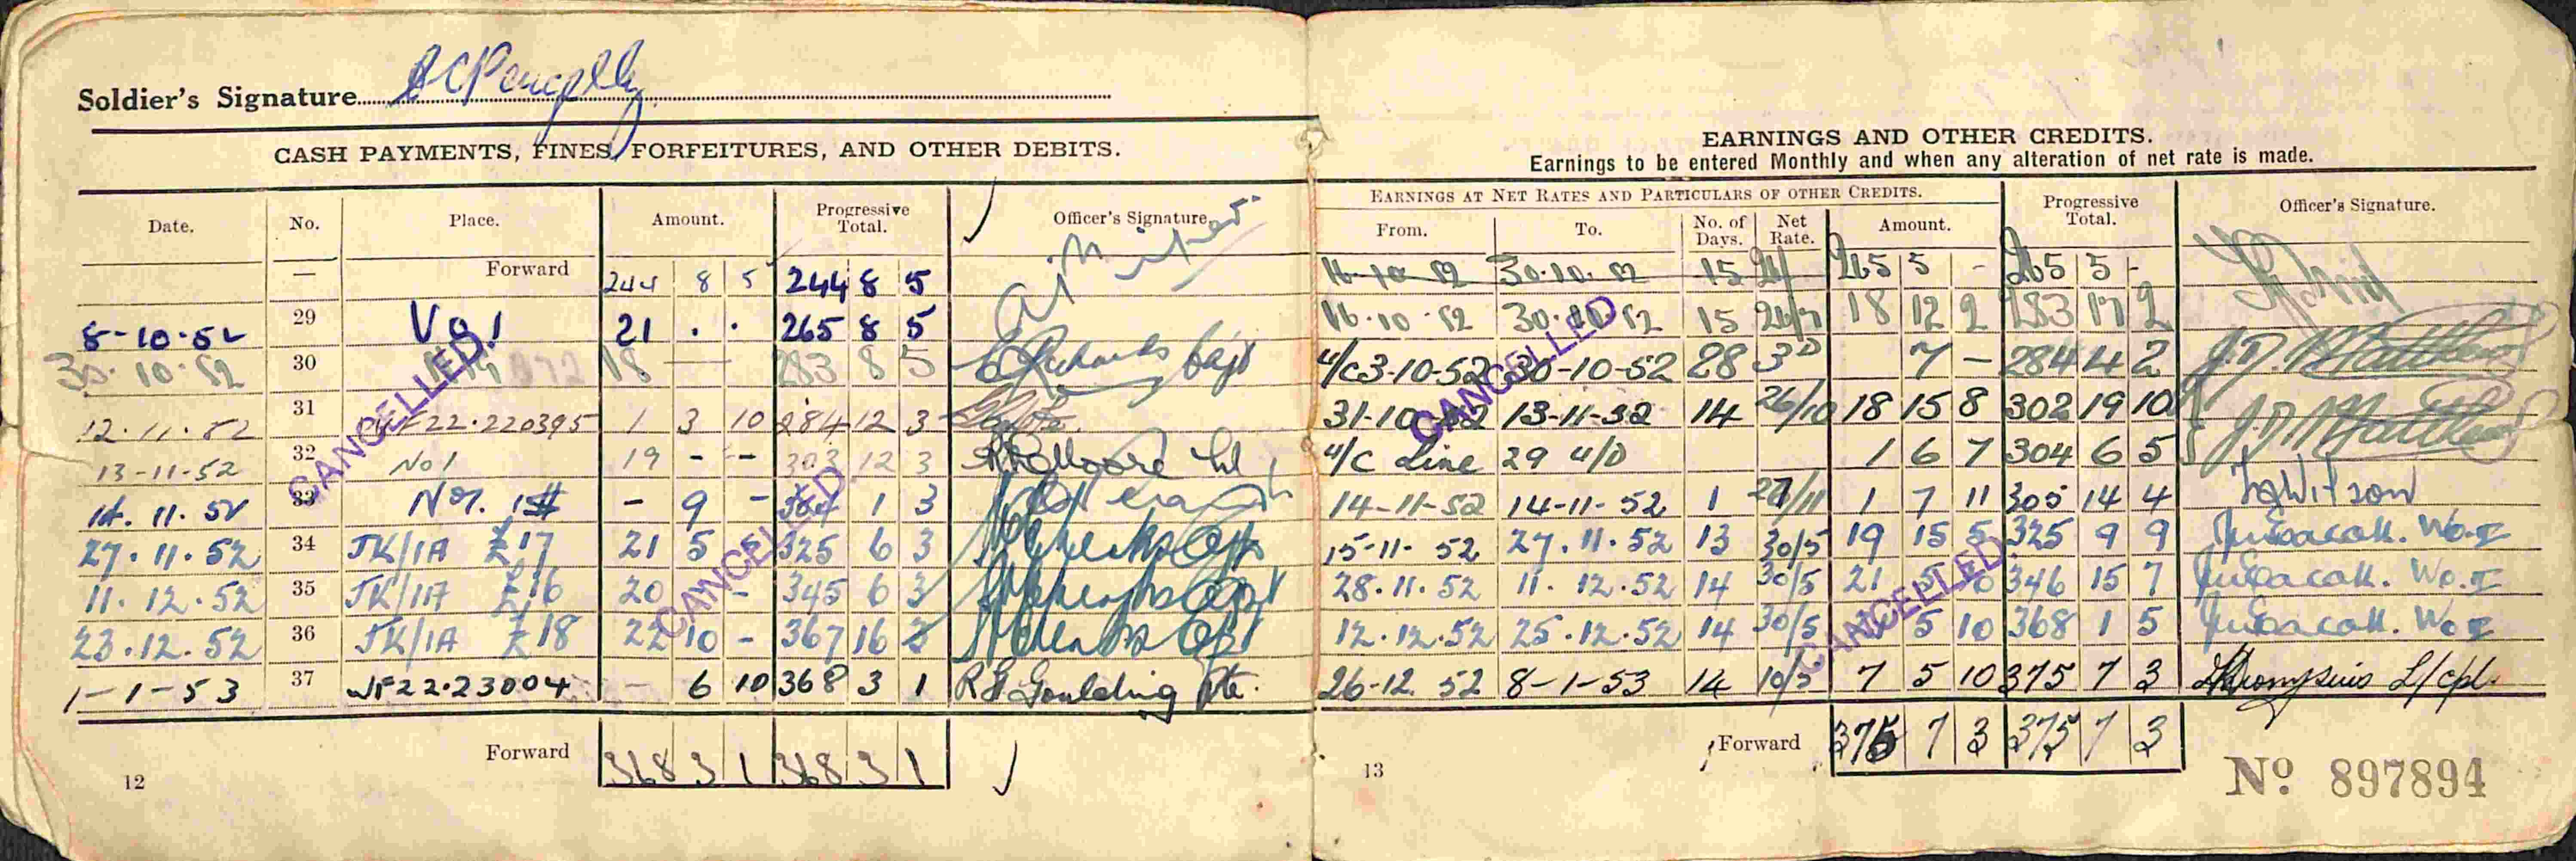 Soldier's Signature
CASH PAYMENTS, FINES, FORFEITURES, AND OTHER DEBITS.
Date. No. Place. Amount. Progressive Total. Officer's Signature
— Forward 244 8 5 244 8 5
8-10-52 29 No 1 21 . . 265 8 5
30.10.52 30 18 — 283 8 5
12.11.52 31 22.220395 1 3 10 284 12 3
13-11-52 32 No 1 19 - - 303 12 3
14.11.52 33 - 9 - 304 1 3
27.11.52 34 JK/1A £17 21 5 - 325 6 3
11.12.52 35 JK/1A £16 20 - - 345 6 3
23.12.52 36 JK/1A £18 22 10 - 367 16 3
1-1-53 37 22.23004 - 6 10 368 3 1 Goulding Pte.
Forward 368 3 1 368 3 1
12
CANCELLED.
CANCELLED
EARNINGS AND OTHER CREDITS.
Earnings to be entered Monthly and when any alteration of net rate is made.
EARNINGS AT NET RATES AND PARTICULARS OF OTHER CREDITS.
From. To. No. of Days. Net Rate. Amount. Progressive Total. Officer's Signature.
16-10-52 30.10.52 15 265 5 - 265 5 -
16.10.52 30.10.52 15 18 12 9 283 17 2
3-10-52 30-10-52 28 3D 7 - 284 4 2 J.D. Matthews
31-10-52 13-11-52 14 26/10 18 15 8 302 19 10
Line 29 1 6 7 304 6 5 J.D. Matthews
14-11-52 14-11-52 1 27/11 1 7 11 305 14 4 Wilson
15-11-52 27.11.52 13 30/5 19 15 5 325 9 9 Wo.II
28.11.52 11.12.52 14 30/5 21 5 10 346 15 7 Wo.II
12.12.52 25.12.52 14 30/5 21 5 10 368 1 5 Wo II
26-12.52 8-1-53 14 10/5 7 5 10 375 7 3 L/cpl.
Forward 375 7 3 375 7 3
13
CANCELLED
CANCELLED
No 897894